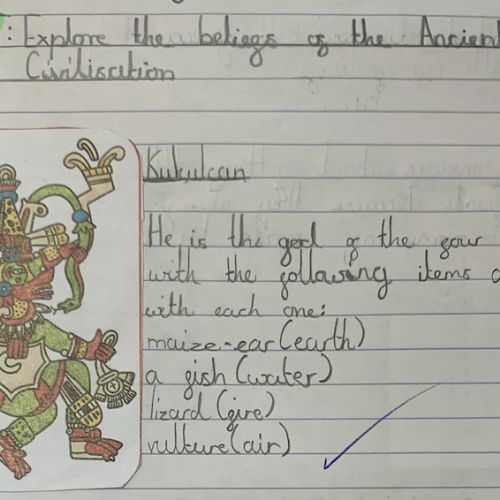 : Explore the beliefs of the Ancient
Civilisation
Kukulcan
He is the god of the four
with the following items
with each one:
maize-ear (earth)
a fish (water)
lizard (fire)
vulture (air)